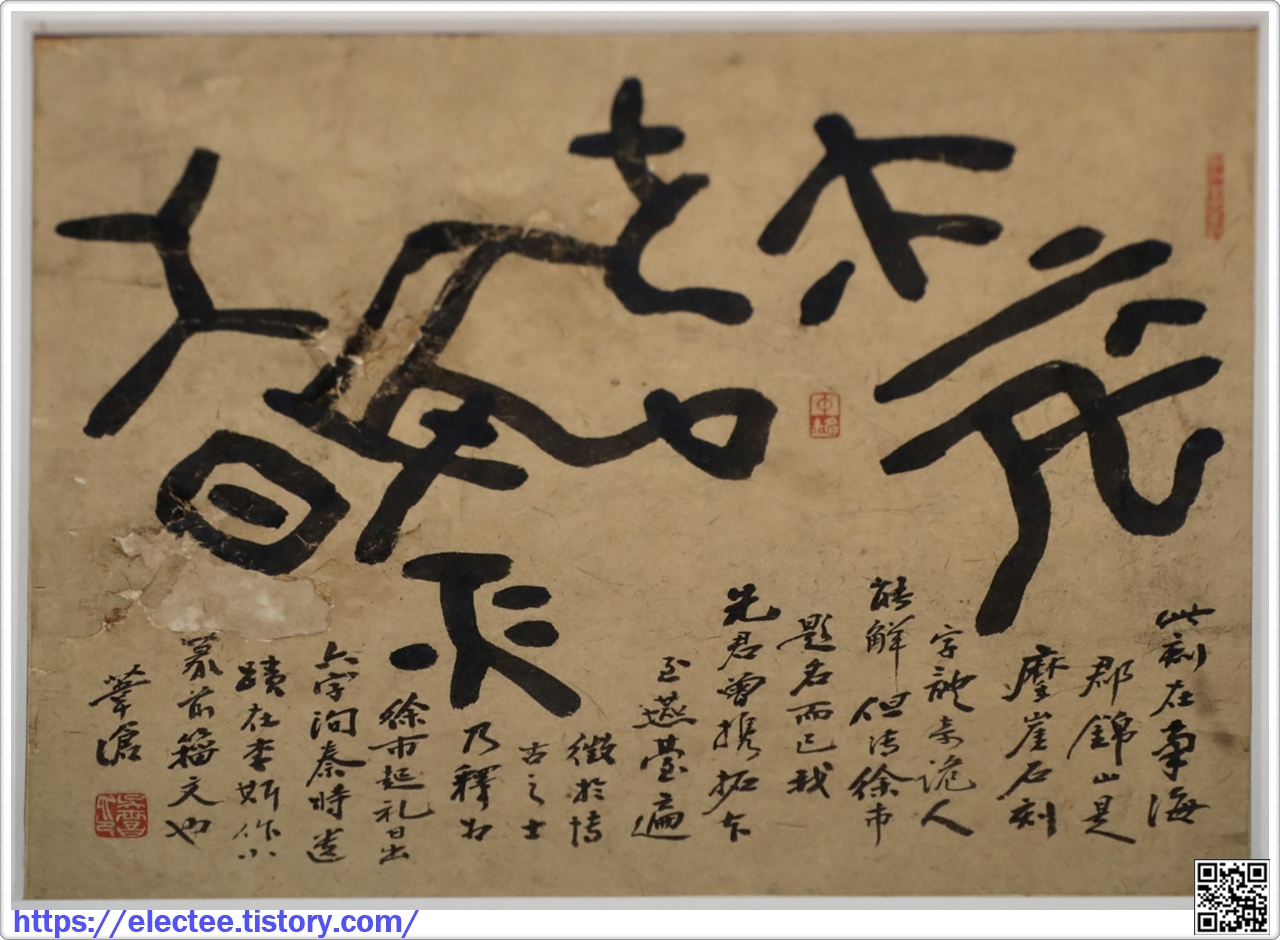 此刻在南海
郡錦山是
摩崖石刻
字體奇詭人
能解但傳徐市
題名而已我
先君曾携拓本
至燕臺遍
徵於博
古之士
乃釋为
徐市起礼日出
六字洵秦時遺
蹟在李斯作小
篆前籀文也
葦滄
https://electee.tistory.com/